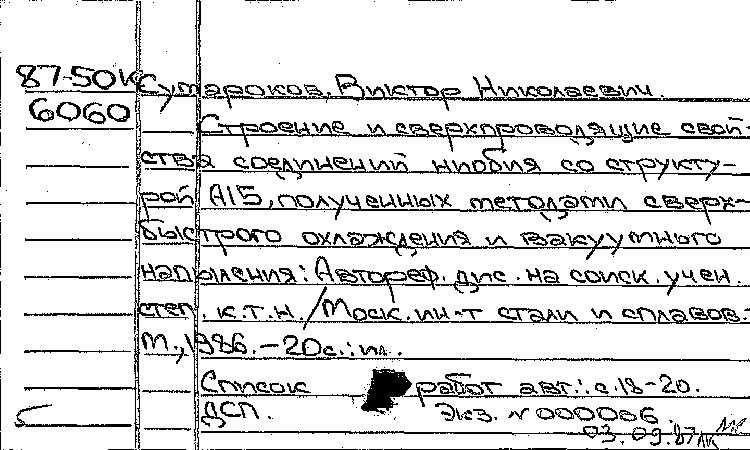 87-50К Сумароков, Виктор Николаевич.
6060 Строение и сверхпроводящие свой-
ства соединений ниобия со структу-
рой А15, полученных методами сверх-
быстрого охлаждения и вакуумного
напыления: Автореф. дис. на соиск. учен.
степ. к.т.н. / Моск. ин-т стали и сплавов.-
М., 1986. - 20с.: ил.
Список работ авт.: с. 18-20.
5 ДСП. Экз. № 000006.
03.09.87